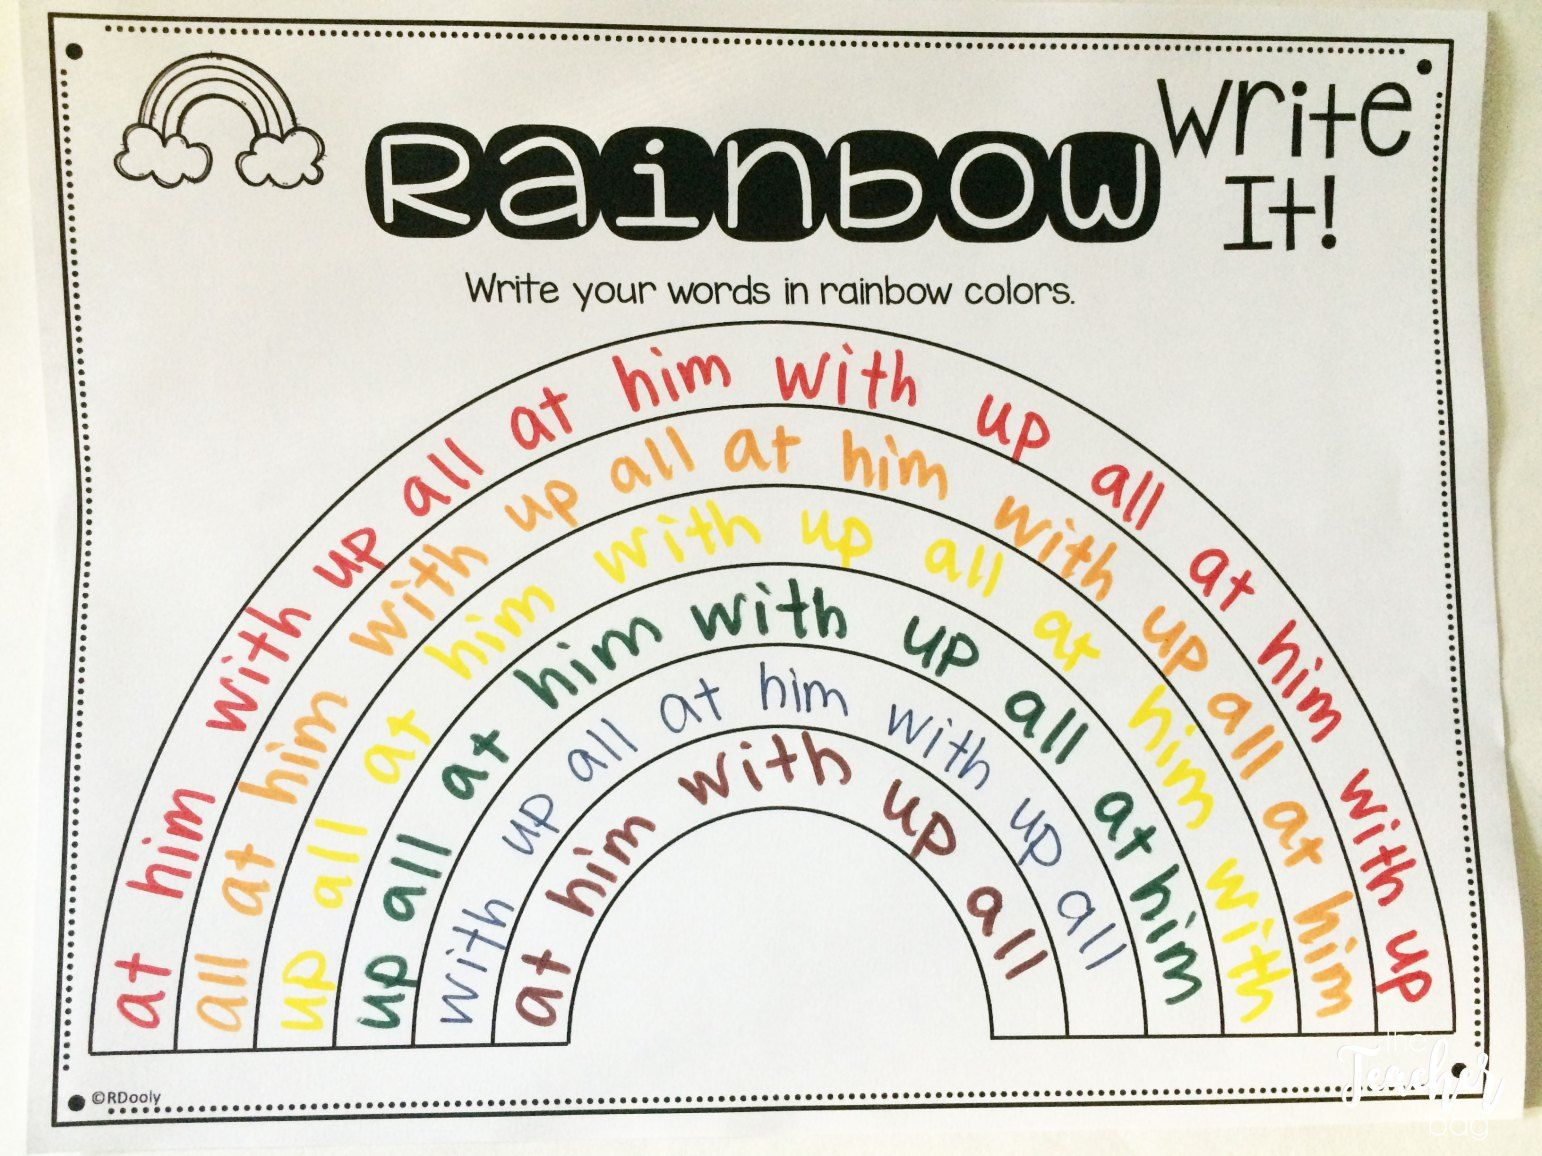 Rainbow Write It!
Write your words in rainbow colors.
at him with up all at him with up all at him with up
all at him with up all at him with up all at him
up all at him with up all at him with
up all at him with up all at him
with up all at him with up all
at him with up all
©RDooly
the Teacher bag